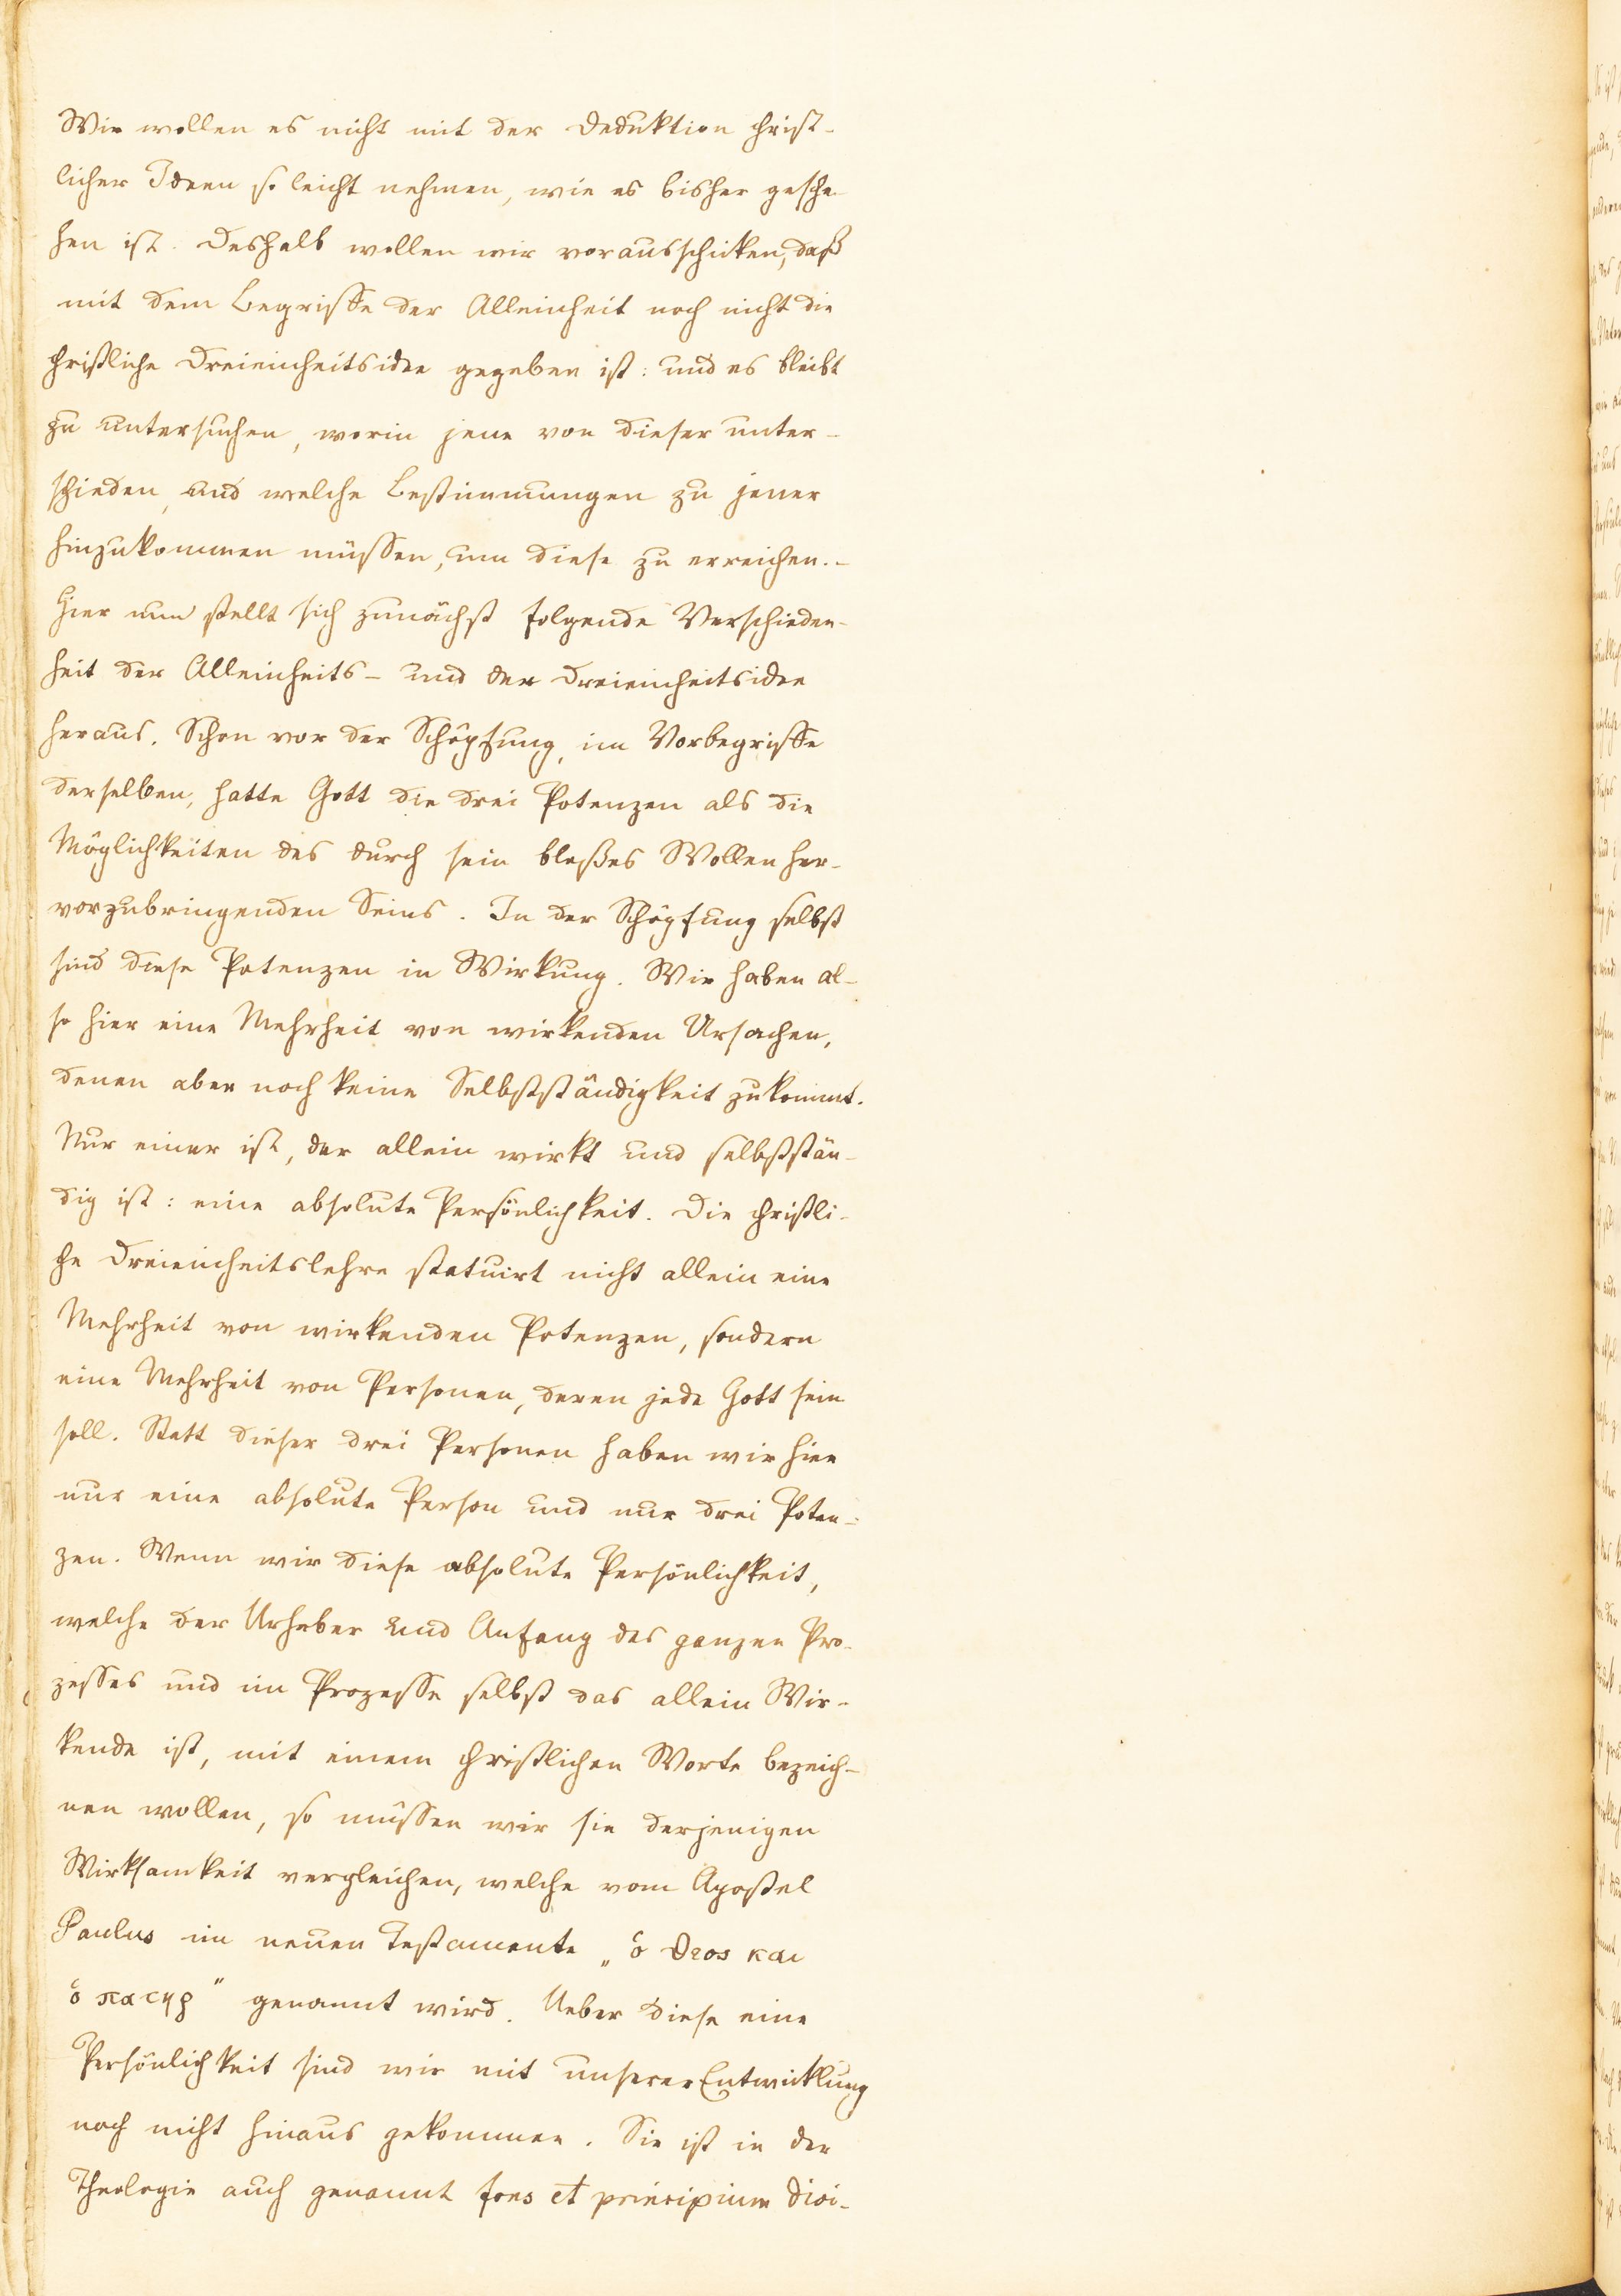 Wir wollen es nicht mit der Deduktion christ-
licher Ideen so leicht nehmen, wie es bisher gesche-
hen ist. Deshalb wollen wir vorausschicken, daß
mit dem Begriffe der Alleinheit noch nicht die
christliche Dreieinheitsidee gegeben ist: und es bleibt
zu untersuchen, worin jene von dieser unter-
schieden, und welche Bestimmungen zu jener
hinzukommen müssen, um diese zu erreichen. –
Hier nun stellt sich zunächst folgende Verschieden-
heit der Alleinheits- und der Dreieinheitsidee
heraus. Schon vor der Schöpfung, im Vorbegriffe
derselben, hatte Gott die drei Potenzen als die
Möglichkeiten des durch sein bloßes Wollen her-
vorzubringenden Seins. In der Schöpfung selbst
sind diese Potenzen in Wirkung. Wir haben al-
so hier eine Mehrheit von wirkenden Ursachen,
denen aber noch keine Selbstständigkeit zukommt.
Nur einer ist, der allein wirkt und selbststän-
dig ist: eine absolute Persönlichkeit. Die christli-
che Dreieinheitslehre statuirt nicht allein eine
Mehrheit von wirkenden Potenzen, sondern
eine Mehrheit von Personen, deren jede Gott sein
soll. Statt dieser drei Personen haben wir hier
nur eine absolute Person und nur drei Poten-
zen. Wenn wir diese absolute Persönlichkeit,
welche der Urheber und Anfang des ganzen Pro-
zesses und im Prozesse selbst das allein Wir-
kende ist, mit einem christlichen Worte bezeich-
nen wollen, so müssen wir sie derjenigen
Wirksamkeit vergleichen, welche vom Apostel
Paulus im neuen Testamente „ὁ θεος και
ὁ πατηρ" genannt wird. Ueber diese eine
Persönlichkeit sind wir mit unserer Entwicklung
noch nicht hinaus gekommen. Sie ist in der
Theologie auch genannt fons et principium divi-